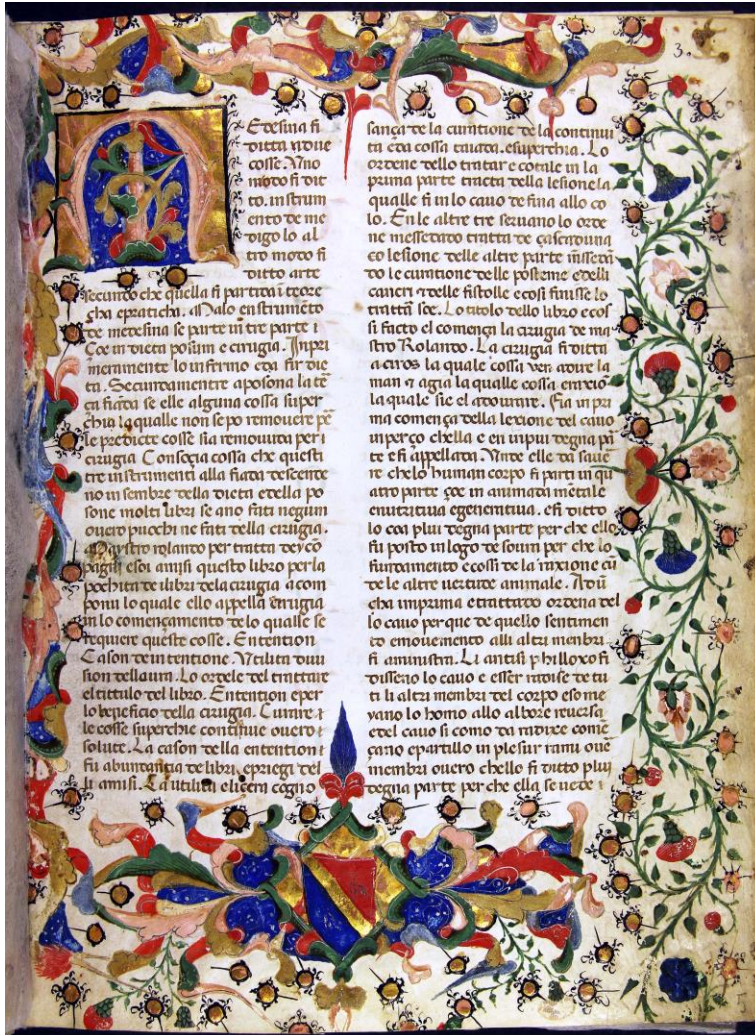 3.
Edesina si
ditta in due
cosse. Uno
modo si dit
to. instrum
ento de me
digo lo al
tro modo si
ditto arte
secundo che quella si partida i teore
cha e praticha. Malo enstrumēto
de medesina se parte in tre parte i
Çoe in dieta posiun e cirugia. Inpri
meramente lo infermo eda sir die
ta. Secundamentre aposona la te
ça fiada se elle alguna cossa super
chia la qualle non se po removere pe
le predicte cosse sia removuda per i
cirugia Consoçia cossa che questi
tre instrumenti alla fiada descente
no insembre della dieta e della po
sone molti libri se ano fati negun
overo puochi ne fati della cirugia.
Maystro rolando per tratta de y cō
pagni e soi amisi questo libro per la
pochita de i libri dela cirugia a com
ponu lo quale ello appella
in lo començamento de lo qualle se
requiere queste cosse. Entention
Cason de intentione. Utilita divi
sion dell Lo ordele del trattare
el tittulo del libro. Entention e per
lo beneficio della cirugia. Curare i
le cosse superchie continue overo i
solute. La cason della entention i
fu abuntantia de libri. e priegi del
li amisi. La utilita cogno
sança de la curatione de la continui
ta e da cossa cavata. e superchia. Lo
ordene dello tratar e cotale in la
prima parte tracta della lesione la
qualle si in lo cavo de fina allo co
lo. En le altre tre servano lo orde
ne messedado tratta de çascaduna
co lesione delle altre parte
do le curatione delle posteme e delli
cancri e delle fistolle e cosi finisse lo
trattà soe. Lo titolo dello libro e cos
si facto el comença la cirugia de ma
stro Rolando. La cirugia si ditta
a ciros la quale cossa ven a dire la
man e agia la qualle cossa en
la quale sie el adovrare. E la in pri
ma comença della lexione del cavo
inperço chella e en inpiu degna pa
te e si appellata. Unde elle da savē
re che lo human corpo si parti in qu
atro parte çoe in animada mētale
e nutritiva e generativa. e si ditto
lo coa plui degna parte per che ello
fu posto in logo de sovra per che lo
fundamento e cossi de la raxione cū
de le altre vertude animale. Adū
cha imprima e trattado ordena del
lo cavo per que de quello sentimen
to e movemento alli altri menbri
si aministra. Li antisi philloxofi
disseno lo cavo e esser radise de tu
ti li altri membri del corpo e some
yano lo homo allo albore reversa
e del cavo si como da radixe comē
çano e partillo in plesur rami ove
membri overo chello si ditto plui
degna parte per che ella se vede i